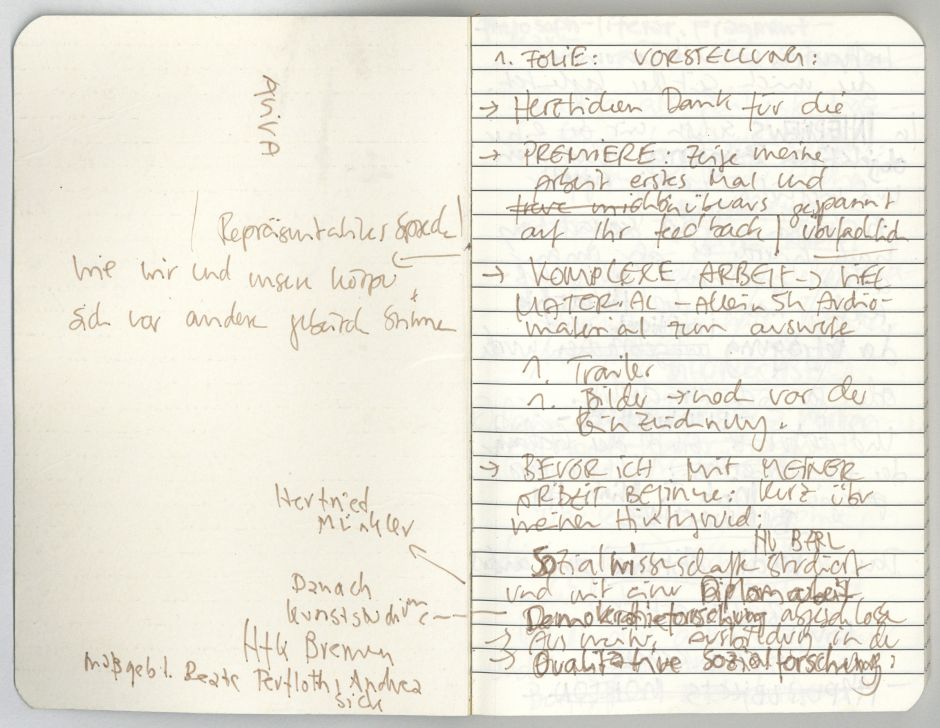 AVIVA
Repräsentatives Sprech
wie wir und unsere Körper
sich vor anderen
Herfried
Münkler
Danach
Kunststudium
HfK Bremen
maßgebl. Beate Terfloth, Andrea
Sick
1. FOLIE: VORSTELLUNG:
→ Herzlichen Dank für die
→ PREMIERE: Zeige meine
Arbeit erstes Mal und
freue mich bin überaus gespannt
auf Ihr feedback / überfachlich
→ KOMPLEXE ARBEIT → VIEL
MATERIAL – Allein 5h Audio-
material zum
1. Trailer
1. Bilder → noch vor der
Einzeichnung.
→ BEVOR ICH MIT MEINER
ARBEIT BEGINNE: Kurz über
meinen Hintergrund:
HU BERL
Sozialwissenschaft studiert
und mit einer Diplomarbeit
Demokratieforschung abgeschlossen
→ Ausbildung in der
→ Qualitative Sozialforschung: